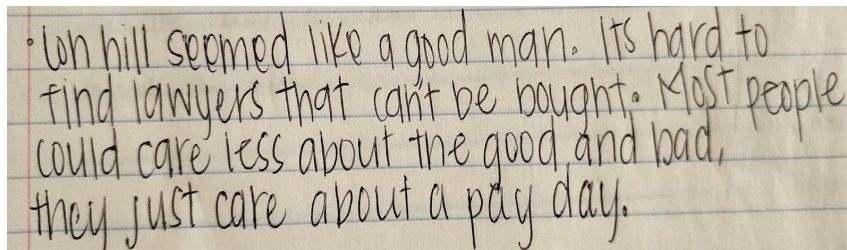 • Lon hill seemed like a good man. Its hard to
find lawyers that can't be bought. Most people
could care less about the good and bad,
they just care about a pay day.